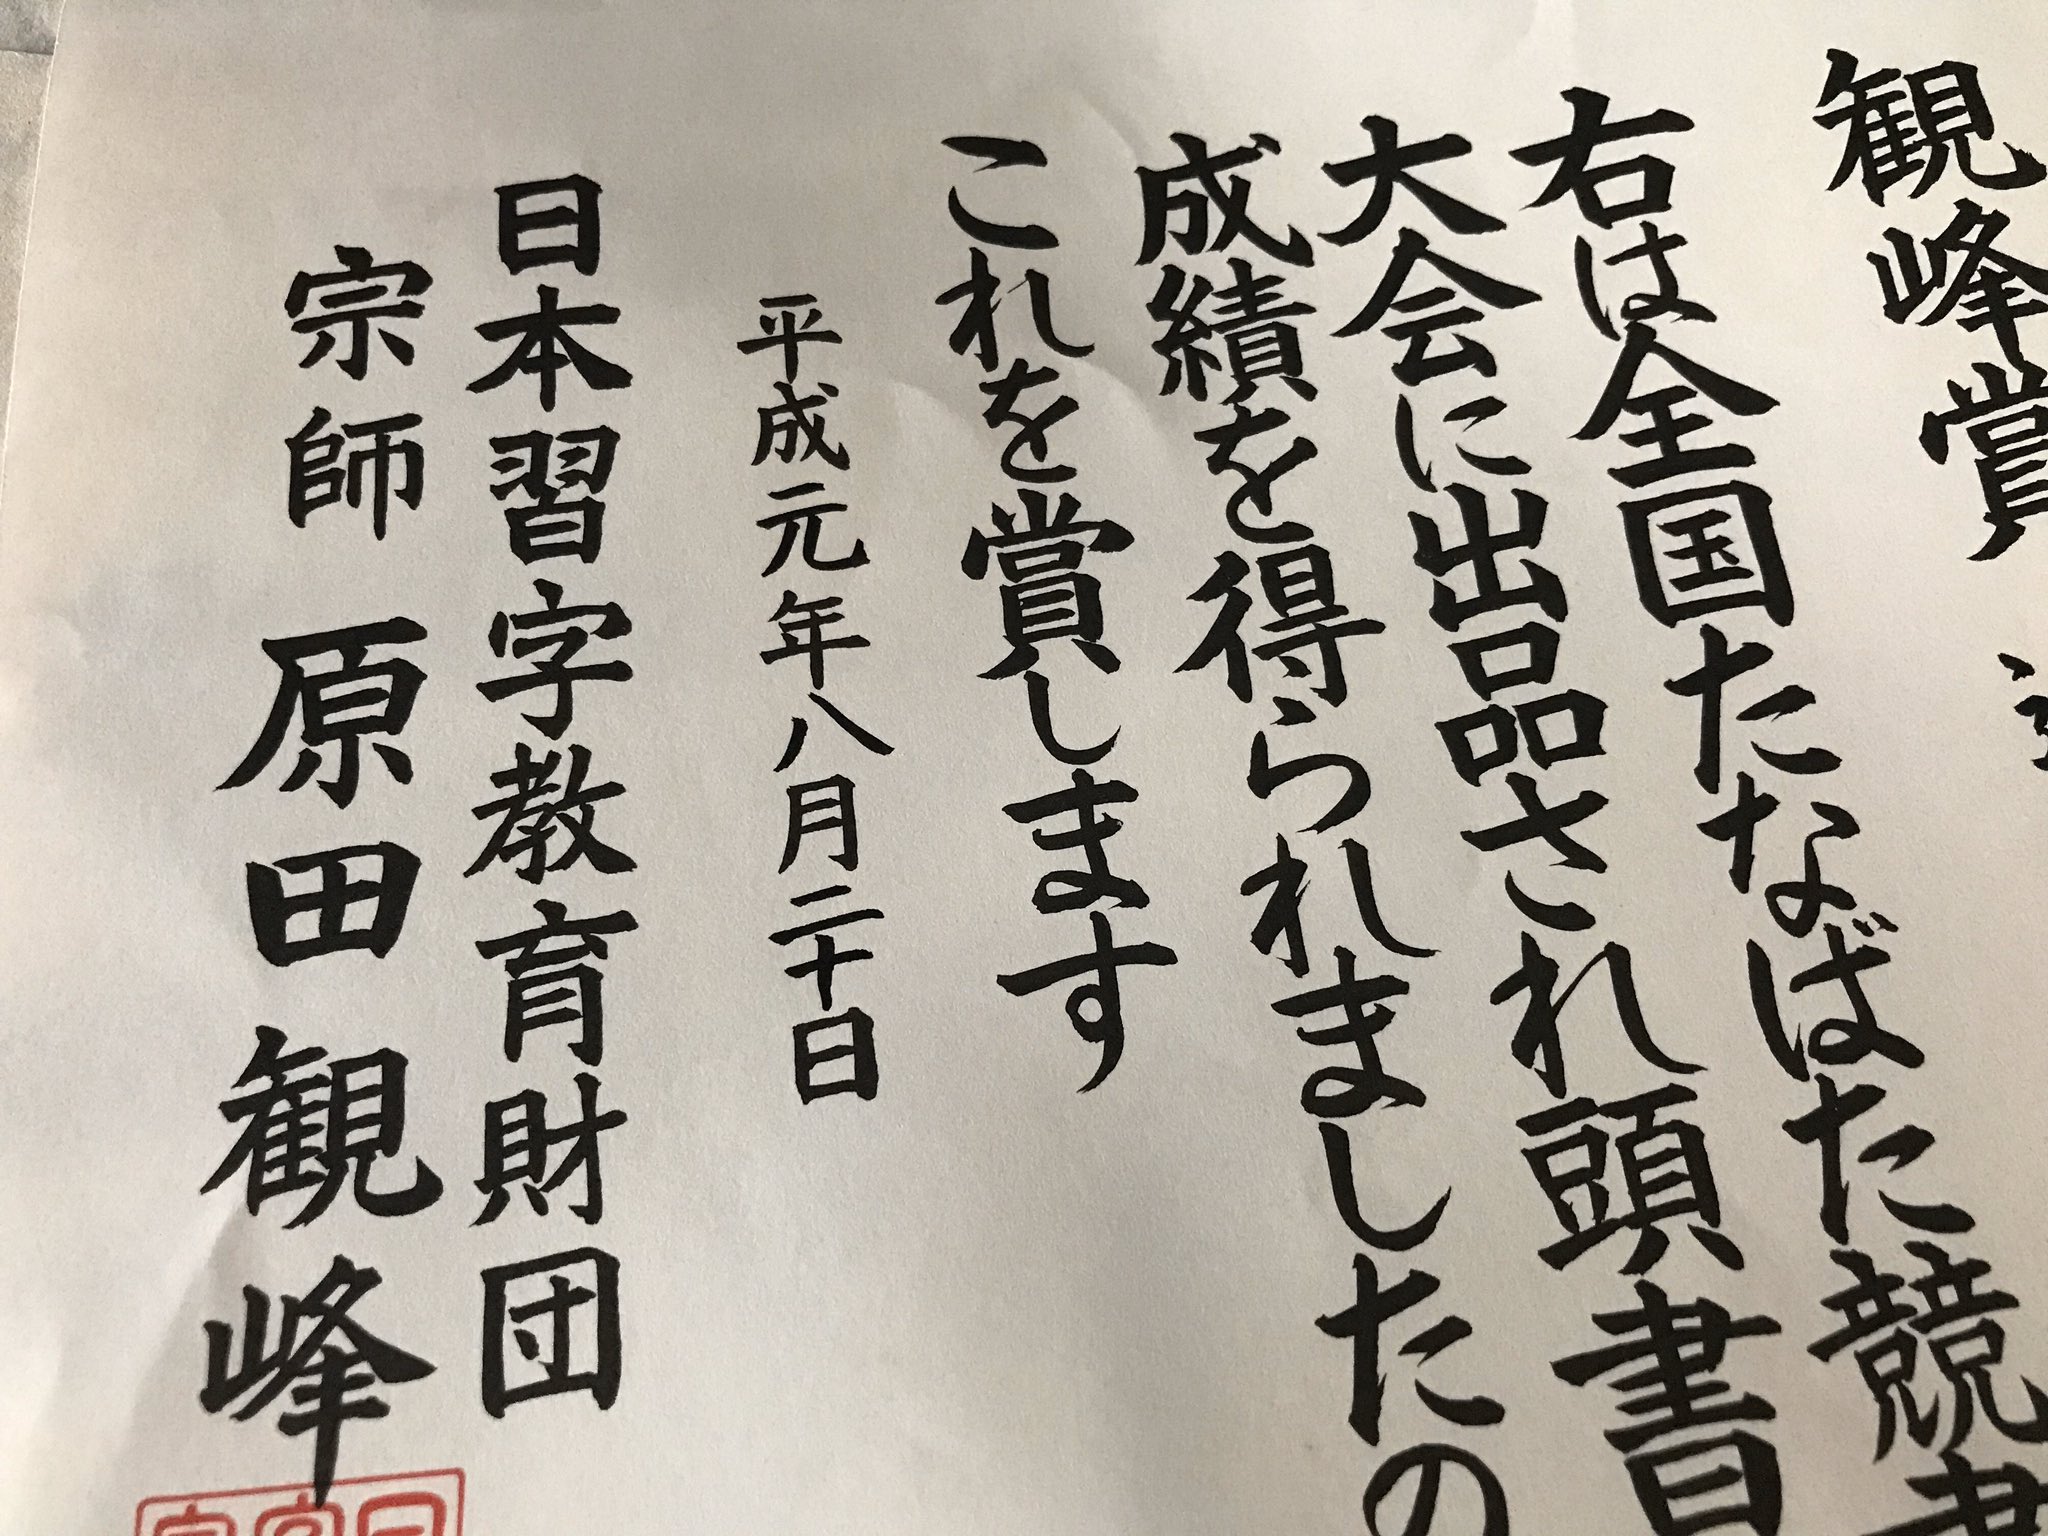 観峰賞
右は全国たなばた競書
大会に出品され頭書
成績を得られましたの
これを賞します
平成元年八月二十日
日本習字教育財団
宗師 原田観峰